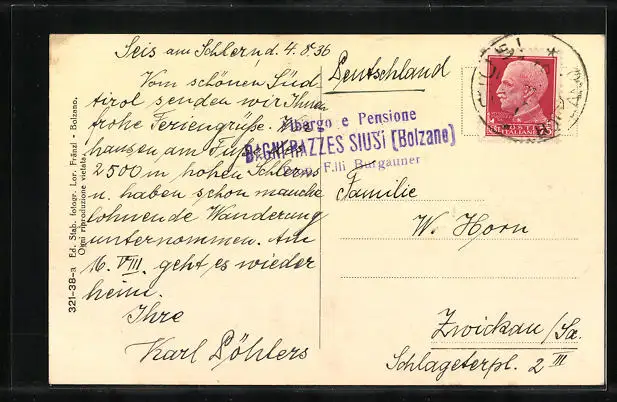 Seis am Schlern, d. 4.8.36
Vom schönen Süd-
tirol senden wir Ihnen
frohe Feriengrüße. Wir
hausen am Fuße des
2500 m hohen Schlerns
u. haben schon manche
lohnende Wanderung
unternommen. Am
16. VIII. geht es wieder
heim.
Ihre
Karl Döhlers
Deutschland
Albergo e Pensione
BAGNI RAZZES SIUSI (Bolzano)
F.lli Burgauner
Familie
W. Horn
Zwickau/Sa.
Schlageterpl. 2 III
321-38-a Ed. Stab. fotogr. Lor. Fränzl - Bolzano.
Ogni riproduzione vietata.
POSTE
ITALIANE